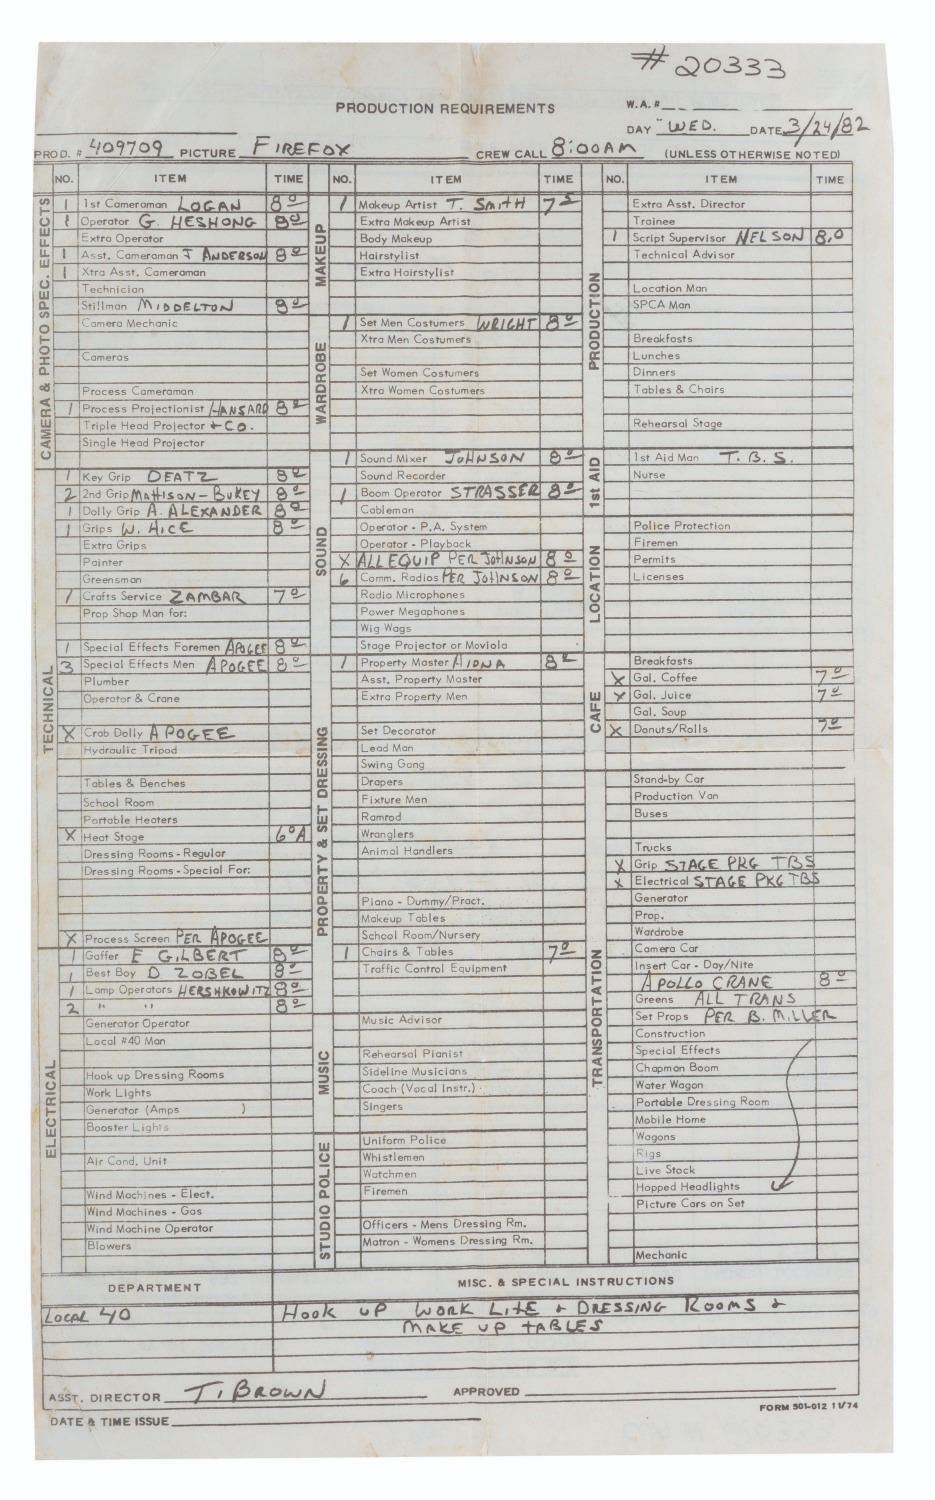 # 20333
PRODUCTION REQUIREMENTS
W.A.#
DAY WED. DATE 3/24/82
PROD. # 409709 PICTURE FIREFOX CREW CALL 8:00AM (UNLESS OTHERWISE NOTED)
NO. ITEM TIME
CAMERA & PHOTO SPEC. EFFECTS
1 1st Cameraman LOGAN 8 00
1 Operator G. HESHONG 8 00
Extra Operator
1 Asst. Cameraman J ANDERSON 8 00
1 Xtra Asst. Cameraman
Technician
Stillman MIDDELTON 8 00
Camera Mechanic
Cameras
Process Cameraman
1 Process Projectionist HANSARD 8 00
Triple Head Projector + CO.
Single Head Projector
TECHNICAL
1 Key Grip DEATZ 8 00
2 2nd Grip MATTISON - BUKEY 8 00
1 Dolly Grip A. ALEXANDER 8 00
1 Grips W. HICE 8 00
Extra Grips
Painter
Greensman
1 Crafts Service ZAMBAR 7 00
Prop Shop Man for:
1 Special Effects Foremen APOGEE 8 00
3 Special Effects Men APOGEE 8 00
Plumber
Operator & Crane
X Crab Dolly APOGEE
Hydraulic Tripod
Tables & Benches
School Room
Portable Heaters
X Heat Stage 6 00 A
Dressing Rooms - Regular
Dressing Rooms - Special For:
X Process Screen PER APOGEE
ELECTRICAL
1 Gaffer E GILBERT 8 00
1 Best Boy D ZOBEL 8 00
1 Lamp Operators HERSHKOWITZ 8 00
2 " " 8 00
Generator Operator
Local #40 Man
Hook up Dressing Rooms
Work Lights
Generator (Amps )
Booster Lights
Air Cond. Unit
Wind Machines - Elect.
Wind Machines - Gas
Wind Machine Operator
Blowers
NO. ITEM TIME
MAKEUP
1 Makeup Artist T. SMITH 7 5
Extra Makeup Artist
Body Makeup
Hairstylist
Extra Hairstylist
WARDROBE
1 Set Men Costumers WRIGHT 8 00
Xtra Men Costumers
Set Women Costumers
Xtra Women Costumers
SOUND
1 Sound Mixer JOHNSON 8 00
Sound Recorder
1 Boom Operator STRASSER 8 00
Cableman
Operator - P.A. System
Operator - Playback
X ALL EQUIP PER JOHNSON 8 0
6 Comm. Radios PER JOHNSON 8 0
Radio Microphones
Power Megaphones
Wig Wags
Stage Projector or Moviola
PROPERTY & SET DRESSING
1 Property Master 8 00
Asst. Property Master
Extra Property Men
Set Decorator
Lead Man
Swing Gang
Drapers
Fixture Men
Ramrod
Wranglers
Animal Handlers
Piano - Dummy/Pract.
Makeup Tables
School Room/Nursery
1 Chairs & Tables 7 00
Traffic Control Equipment
MUSIC
Music Advisor
Rehearsal Pianist
Sideline Musicians
Coach (Vocal Instr.)
Singers
STUDIO POLICE
Uniform Police
Whistlemen
Watchmen
Firemen
Officers - Mens Dressing Rm.
Matron - Womens Dressing Rm.
NO. ITEM TIME
PRODUCTION
Extra Asst. Director
Trainee
1 Script Supervisor NELSON 8,0
Technical Advisor
Location Man
SPCA Man
Breakfasts
Lunches
Dinners
Tables & Chairs
Rehearsal Stage
1st AID
1st Aid Man T. B. S.
Nurse
LOCATION
Police Protection
Firemen
Permits
Licenses
CAFE
Breakfasts
X Gal. Coffee 7 0
X Gal. Juice 7 0
Gal. Soup
X Donuts/Rolls 7 0
TRANSPORTATION
Stand-by Car
Production Van
Buses
Trucks
X Grip STAGE PKG TBS
X Electrical STAGE PKG TBS
Generator
Prop.
Wardrobe
Camera Car
Insert Car - Day/Nite
APOLLO CRANE 8 0
Greens ALL TRANS
Set Props PER B. MILLER
Construction
Special Effects
Chapman Boom
Water Wagon
Portable Dressing Room
Mobile Home
Wagons
Rigs
Live Stock
Hopped Headlights
Picture Cars on Set
Mechanic
DEPARTMENT MISC. & SPECIAL INSTRUCTIONS
LOCAL 40 HOOK UP WORK LITE + DRESSING ROOMS +
MAKE UP TABLES
ASST. DIRECTOR T. BROWN APPROVED
FORM 501-012 11/74
DATE & TIME ISSUE